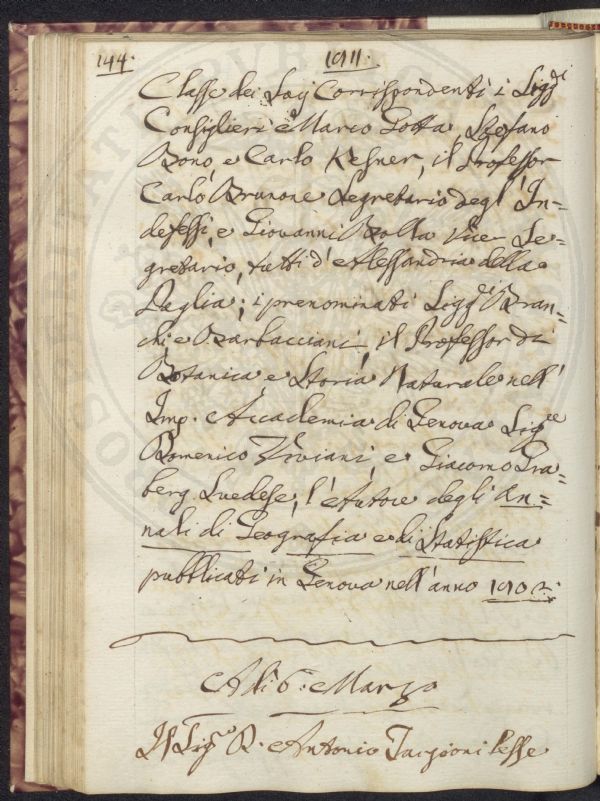 144.
1811.
Classe dei Socj Corrispondenti i Sigg.ri
Consiglieri Marco Gotta, Stefano
Bonò, e Carlo Kesner, il Professor
Carlo Brunone Segretario degl'In=
defessi, e Giovanni Bolla Vice Se=
gretario, tutti d'Alessandria della
Paglia; i prenominati Sigg.ri Bran=
chi e Barbacciani, il Professor di
Botanica e Storia Naturale nell'
Imp. Accademia di Genova Sig.re
Domenico Viviani, e Giacomo Gra=
berg Svedese, l'Autore degli An=
nali di Geografia e di Statistica
pubblicati in Genova nell'anno 1802.
A dì 6. Marzo
Il Sig.r D. Antonio Targioni lesse